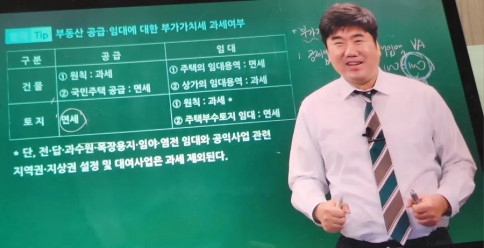 Tip 부동산 공급·임대에 대한 부가가치세 과세여부
구 분 공 급 임 대
건 물 ① 원칙 : 과세 ① 주택의 임대용역 : 면세
② 국민주택 공급 : 면세 ② 상가의 임대용역 : 과세
토 지 면세 ① 원칙 : 과세 *
② 주택부수토지 임대 : 면세
* 단, 전·답·과수원·목장용지·임야·염전 임대와 공익사업 관련
지역권·지상권 설정 및 대여사업은 과세 제외된다.
VA